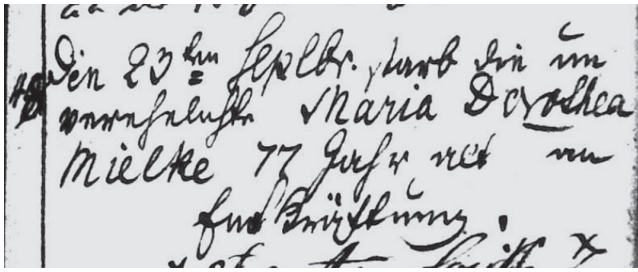 Den 23ten Septbr. starb die un
verehelichte Maria Dorothea
Mielke 77 Jahr alt an
Entkräftung.